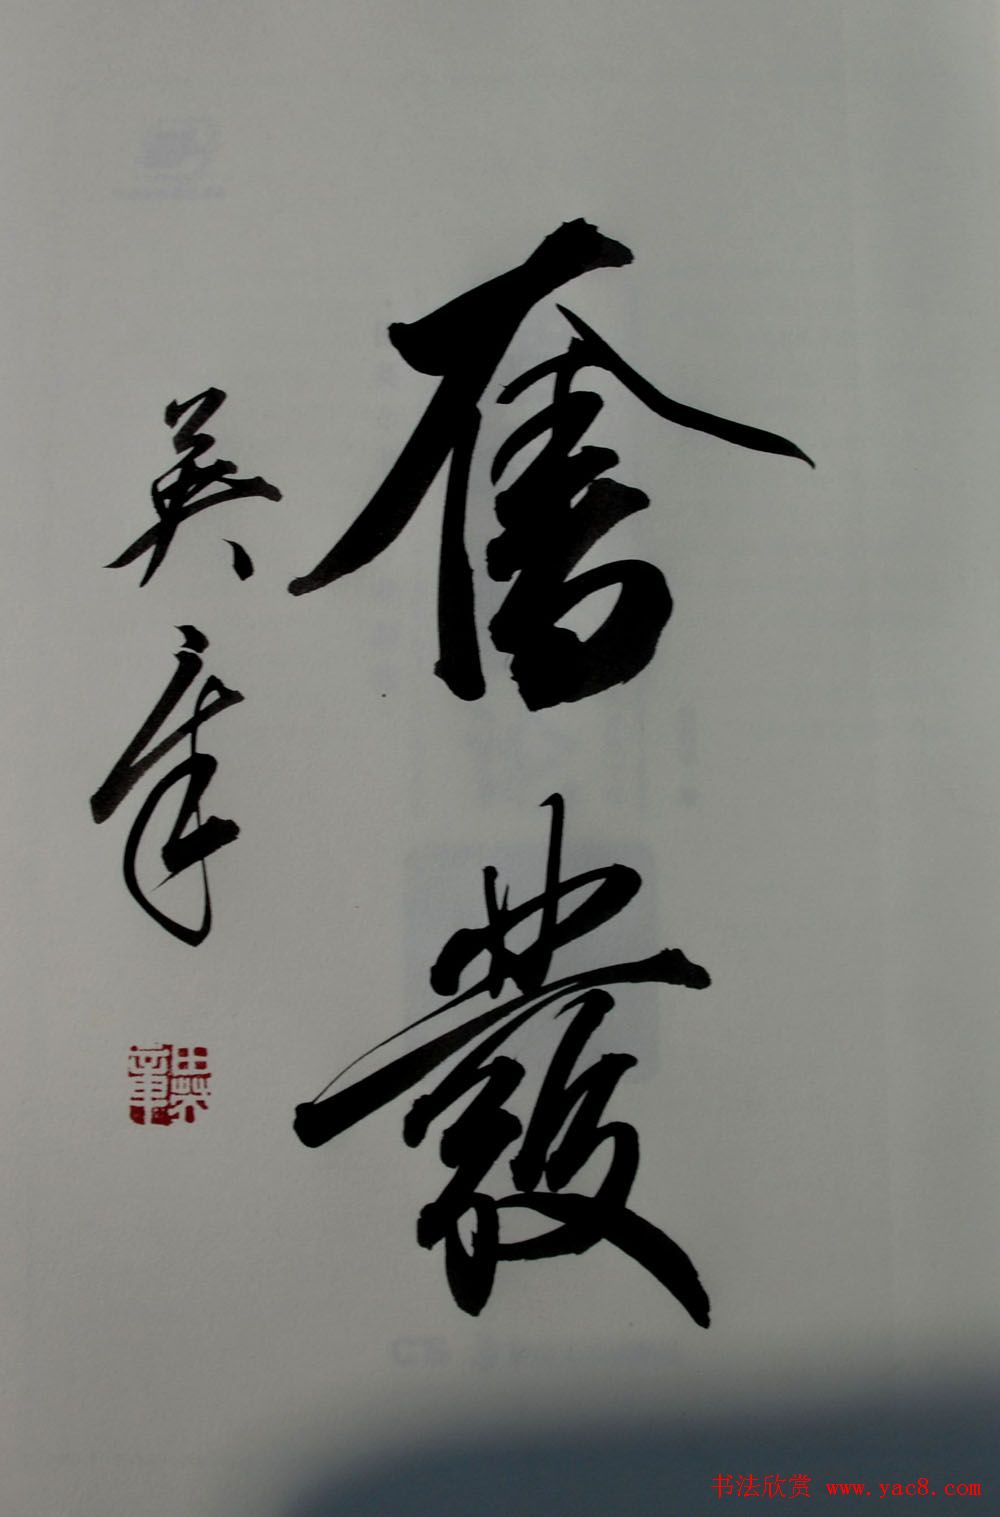 奮發
英章
田英章
书法欣赏 www.yac8.com